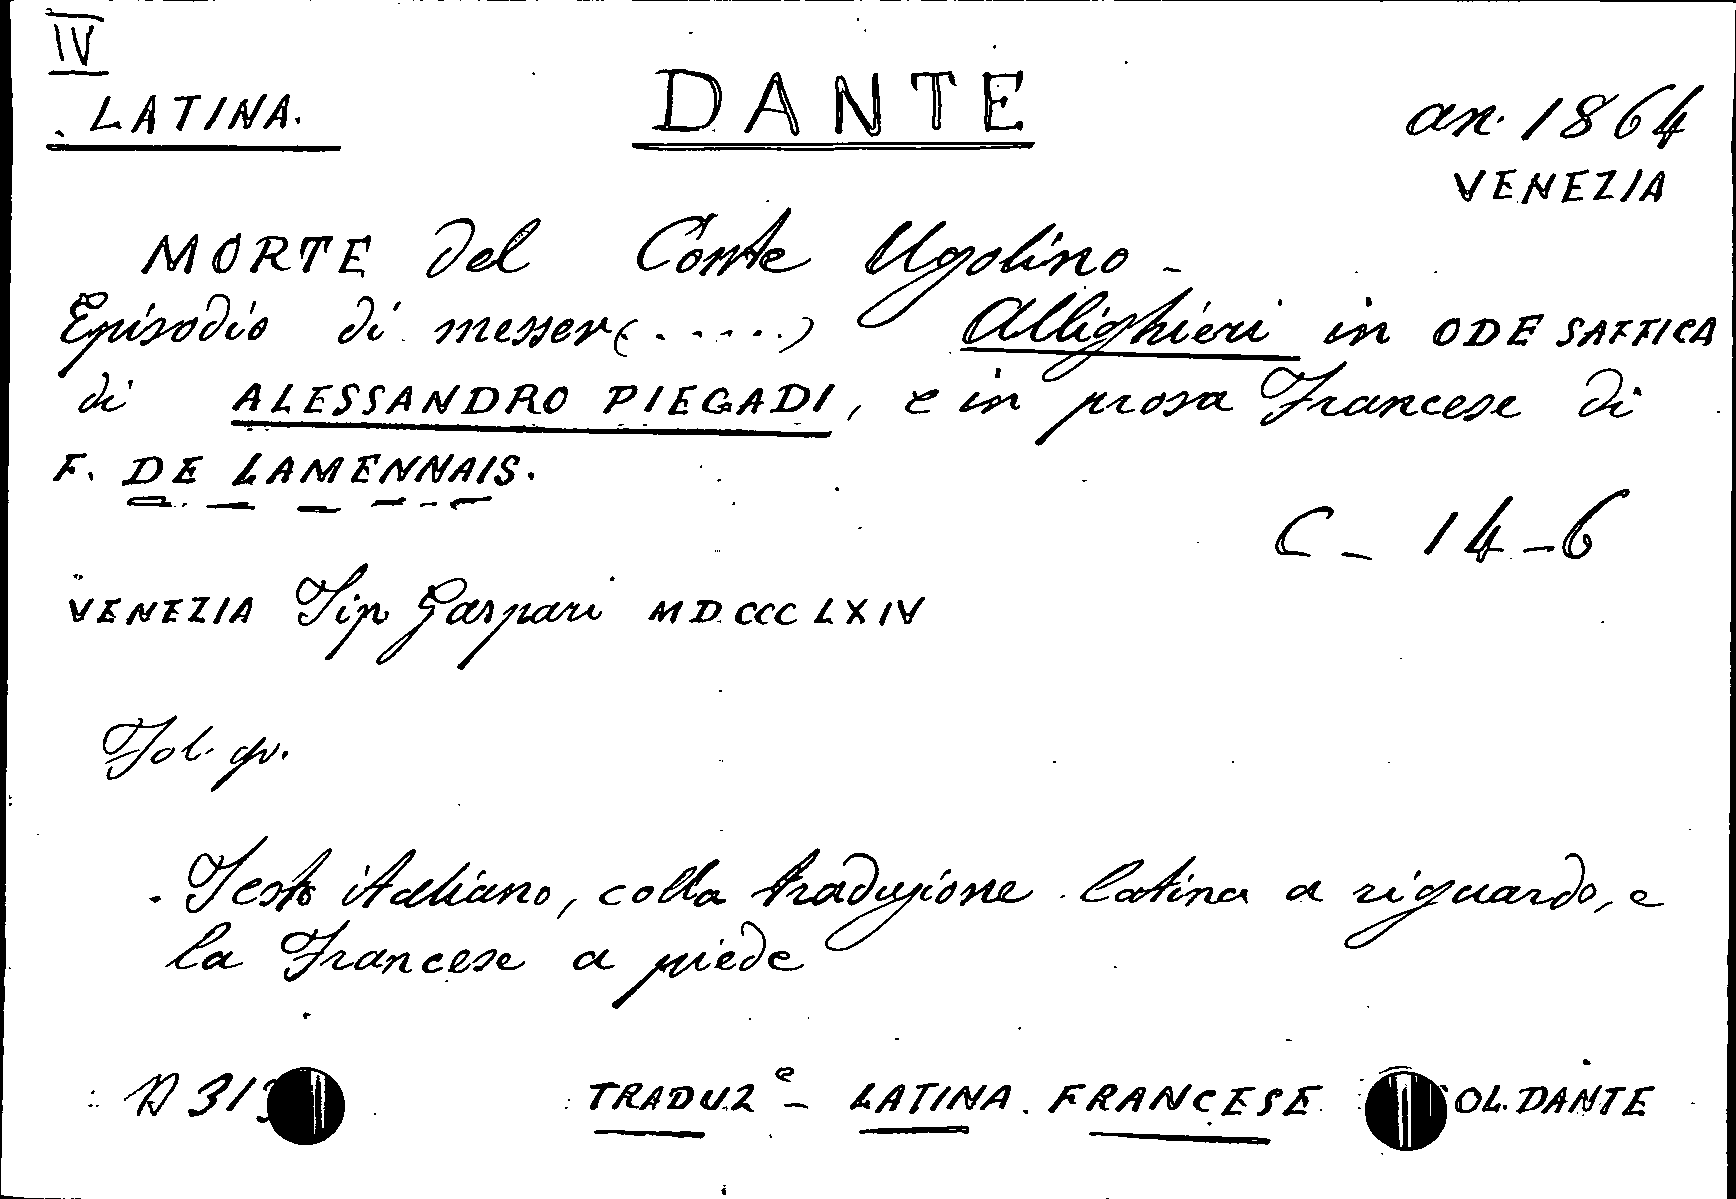 IV
LATINA.
DANTE
an. 1864
VENEZIA
MORTE del Conte Ugolino -
Episodio di messer (.....) Allighieri in ODE SAFFICA
di ALESSANDRO PIEGADI, e in prosa Francese di
F. DE LAMENNAIS.
C - 14 - 6
VENEZIA Tip Gaspari MDCCCLXIV
Fol. gr.
Testo italiano, colla traduzione latina a riguardo, e
la Francese a piede
TRADUZe - LATINA. FRANCESE OL. DANTE